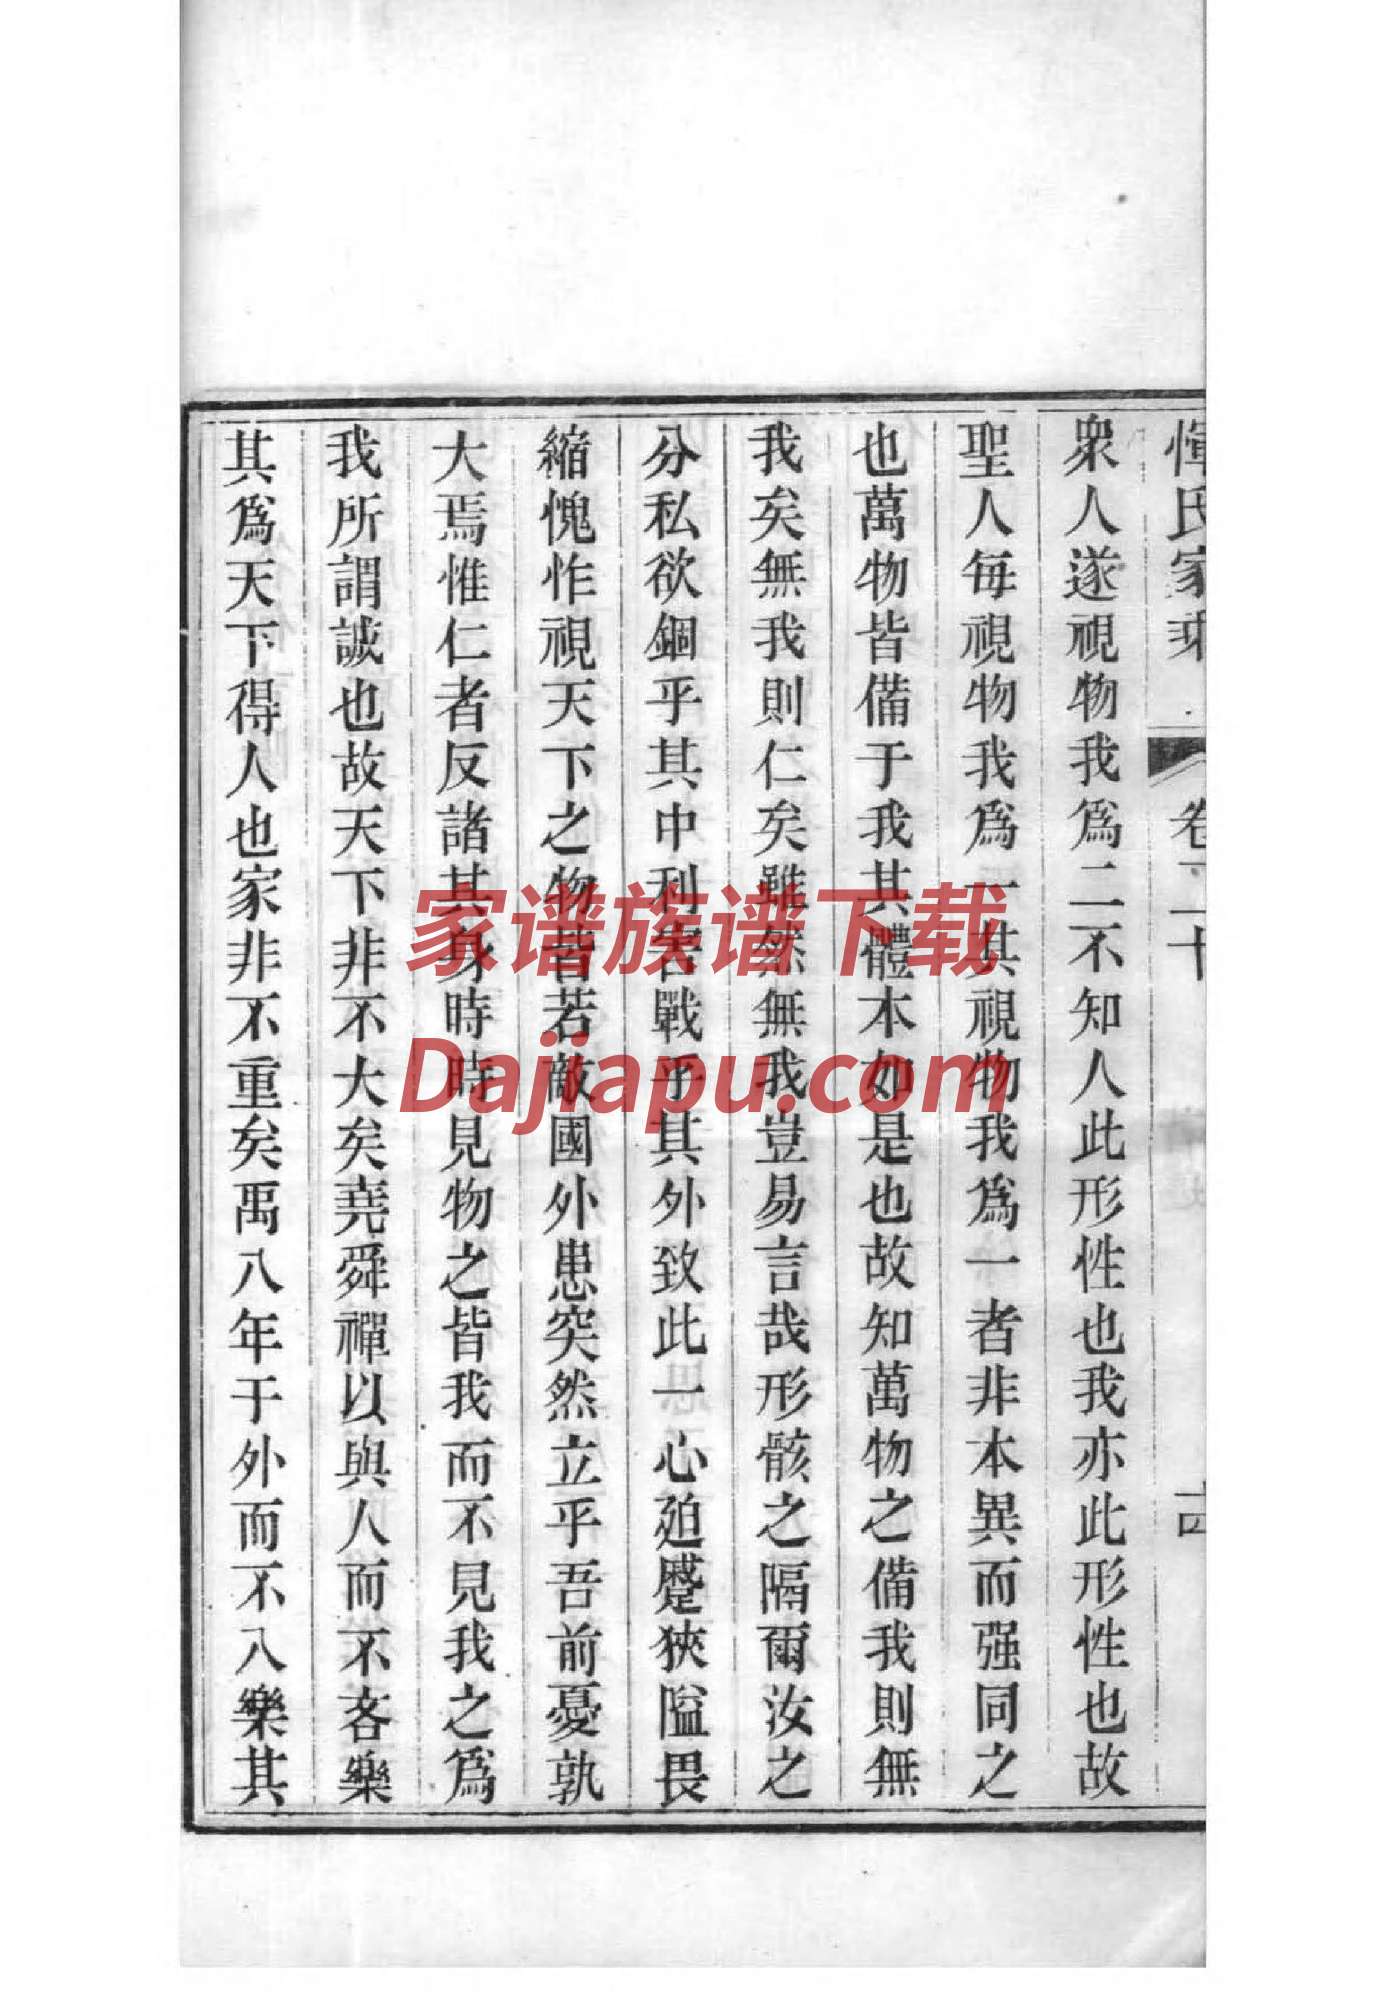 惲氏家乘
卷
十
衆人遂視物我爲二不知人此形性也我亦此形性也故
聖人每視物我爲一其視物我爲一者非本異而强同之
也萬物皆備于我其體本如是也故知萬物之備我則無
我矣無我則仁矣雖然無我豈易言哉形骸之隔爾汝之
分私欲錮乎其中利害戰乎其外致此一心廹蹙狹隘畏
縮愧怍視天下之物皆若敵國外患突然立乎吾前憂孰
大焉惟仁者反諸其身時時見物之皆我而不見我之爲
我所謂誠也故天下非不大矣堯舜禪以與人而不吝樂
其爲天下得人也家非不重矣禹八年于外而不入樂其
家谱族谱下载
Dajiapu.com